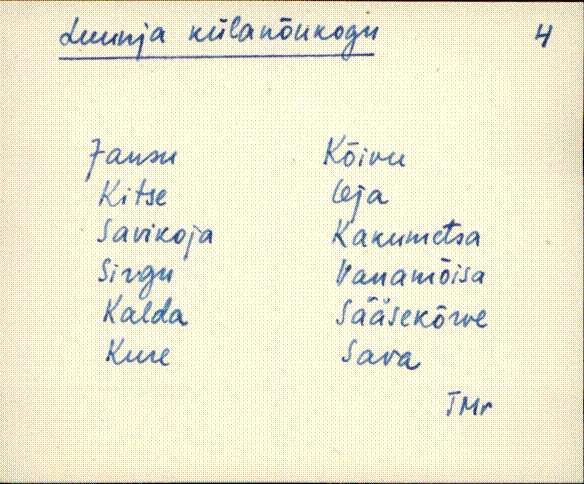 Luunja külanõukogu 4
Jansu Kõivu
Kitse Oja
Savikoja Kakumetsa
Sirgu Vanamõisa
Kalda Sääsekõrve
Kure Sava
TMr